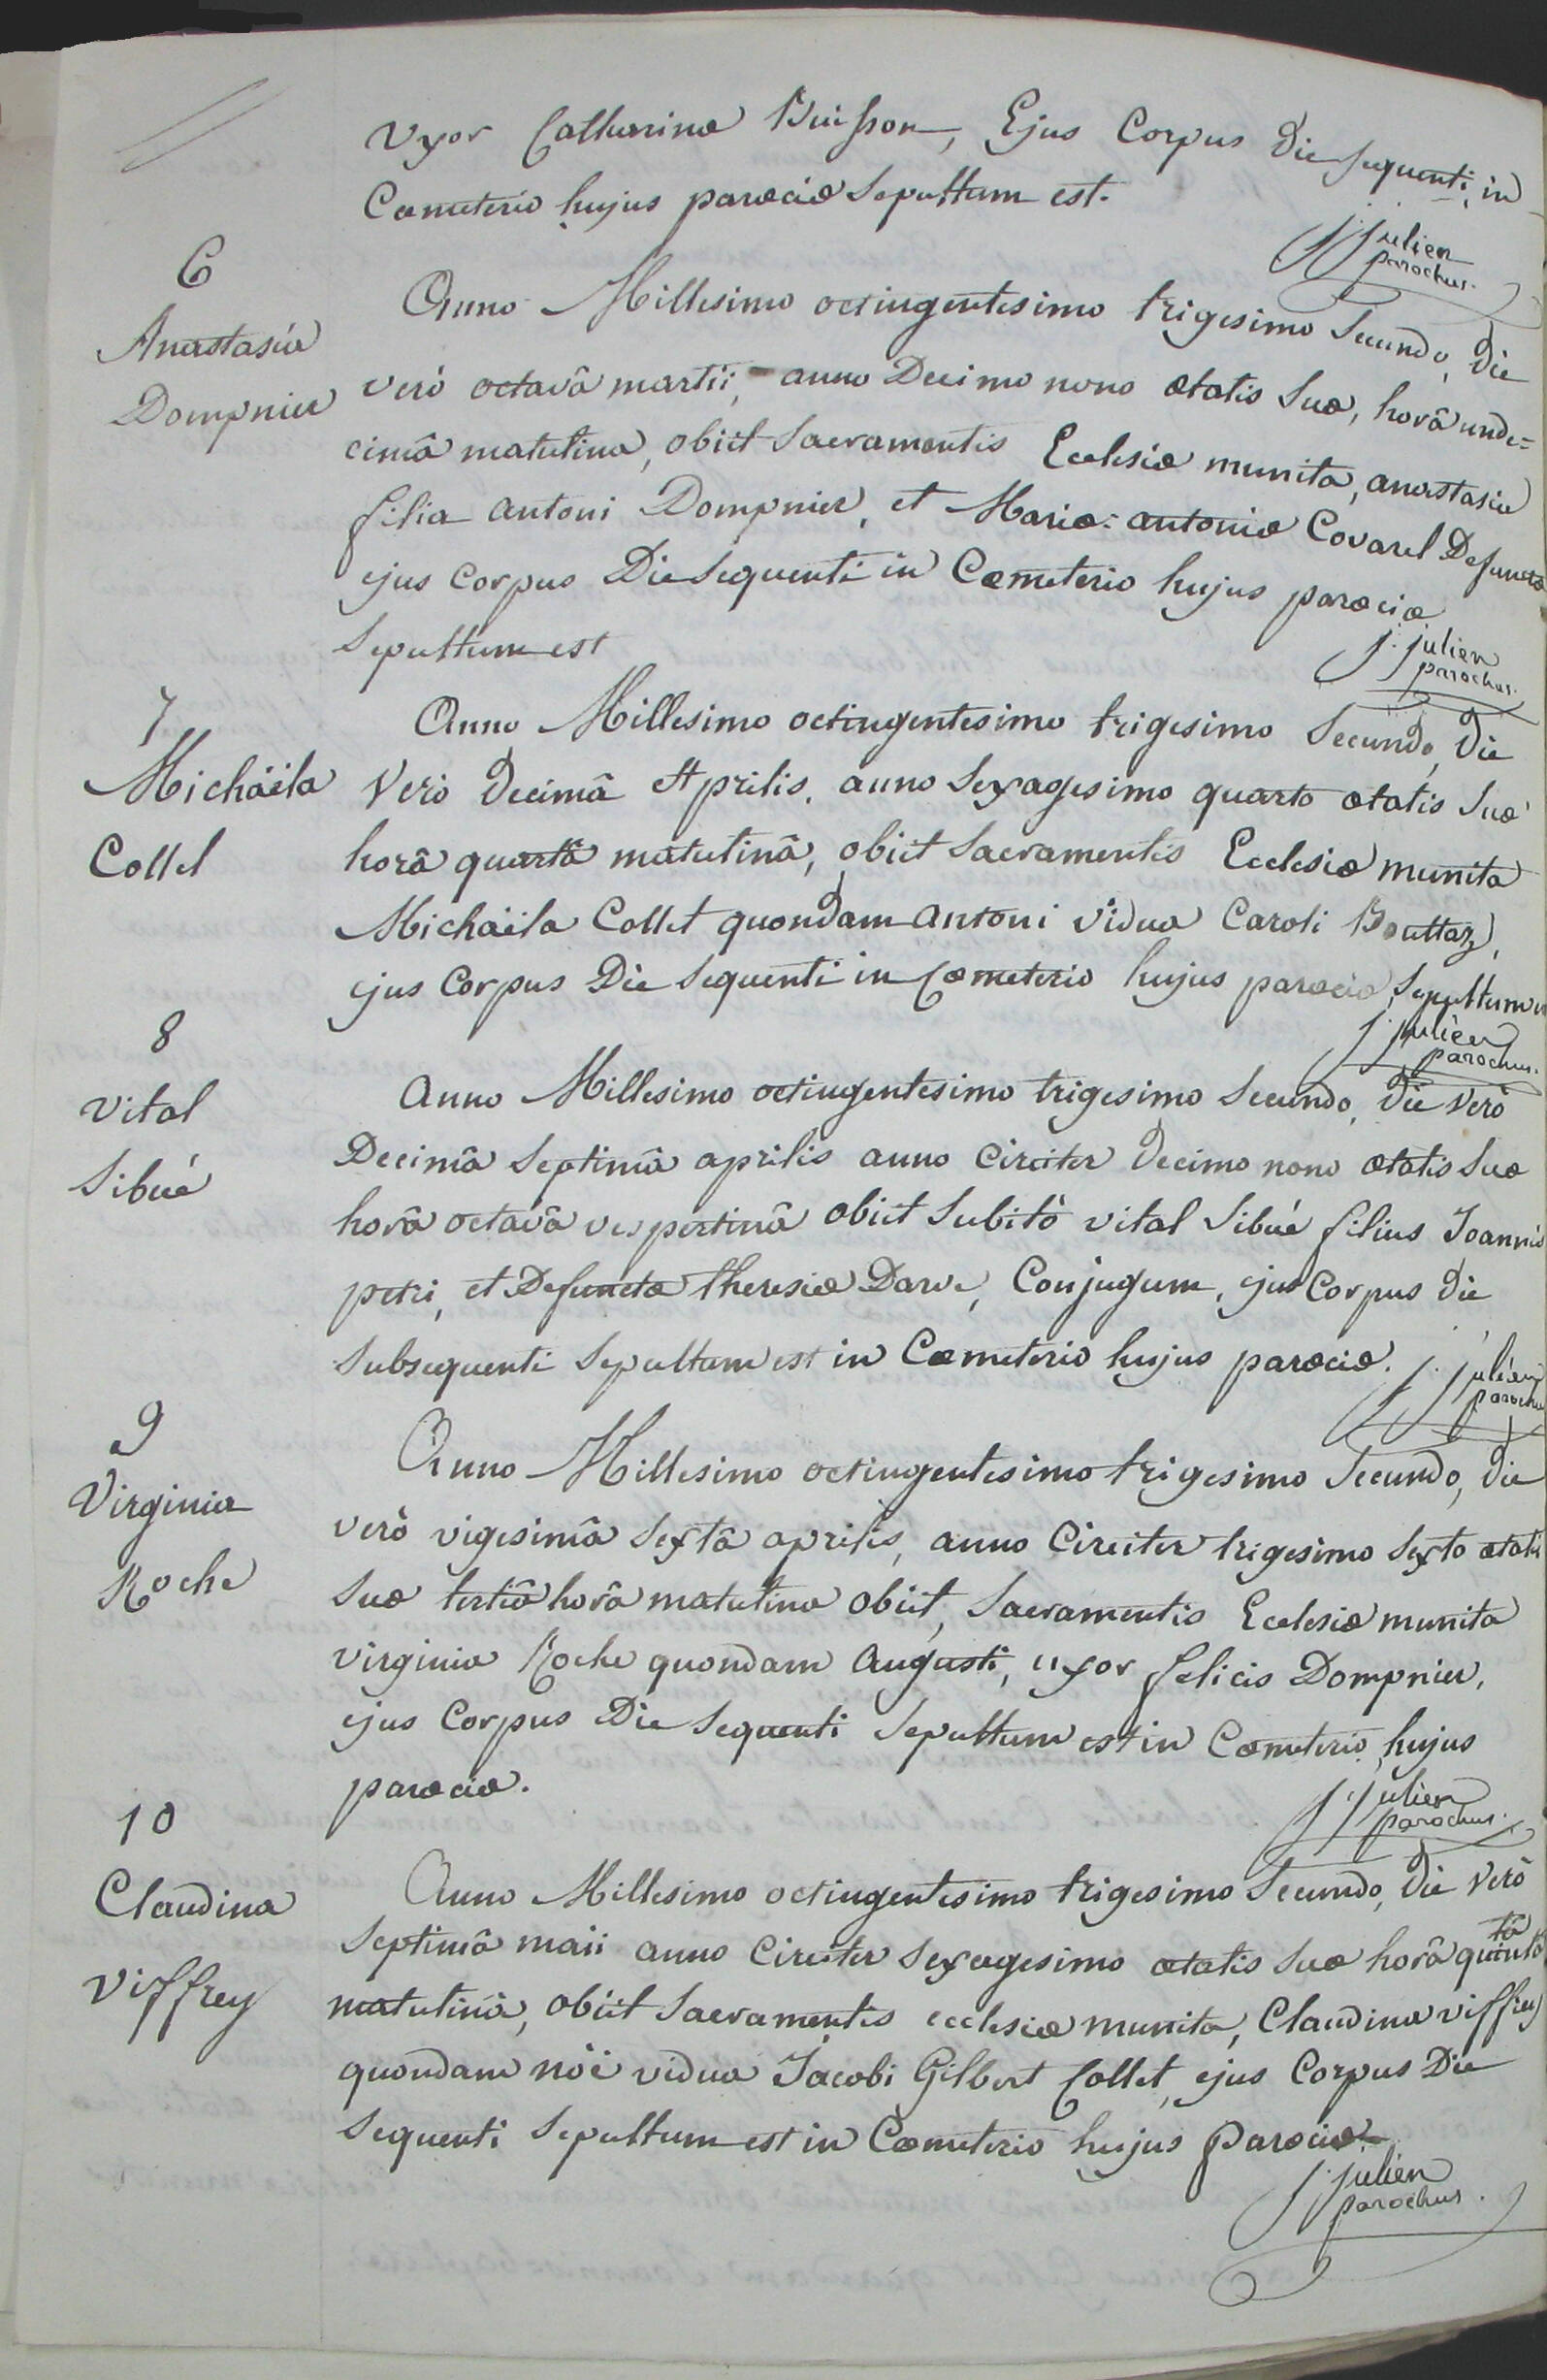 Uxor Catharina Buisson, Ejus Corpus die sequenti, in
Cœmeterio hujus parœciæ Sepultum est.
j. julien
parochus.
6
Anastasia
Dompnier
Anno Millesimo octingentesimo trigesimo Secundo, Die
verò octavâ martii, anno Decimo nono ætatis Suæ, horâ unde=
cimâ matutina, obiit Sacramentis Ecclesiæ munita, anastasia
filia antoni Dompnier, et Mariæ-antoniæ Covarel Defunctæ
ejus Corpus Die Sequenti in Cœmeterio hujus parœciæ
Sepultum est
j. julien
parochus.
7
Michäila
Collet
Anno Millesimo octingentesimo trigesimo Secundo, Die
Verò Decimâ Aprilis, anno Sexagesimo quarto ætatis Suæ
horâ quartâ matutinâ, obiit Sacramentis Ecclesiæ munita
Michäila Collet quondam antoni vidua Caroli Bouttaz,
ejus Corpus Die Sequenti in Cœmeterio hujus parœciæ Sepultum
j. julien
parochus.
8
Vital
Sibué
Anno Millesimo octingentesimo trigesimo Secundo, Die Verò
Decimâ Septimâ aprilis anno Circiter Decimo nono ætatis Suæ
horâ octavâ vespertinâ obiit Subitò vital Sibué filius Joannis
petri, et Defunctæ theresiæ Darve, Conjugum, ejus Corpus Die
Subsequenti Sepultum est in Cœmeterio hujus parœciæ.
j. julien
parochus
9
Virginia
Roche
Anno Millesimo octingentesimo trigesimo Secundo, Die
verò vigesimâ Sextâ aprilis, anno Circiter trigesimo Sexto ætatis
Suæ tertiâ horâ matutina obiit, Sacramentis Ecclesiæ munita
virginia Roche quondam Augusti, uxor felicis Dompnier,
ejus Corpus Die Sequenti Sepultum est in Cœmeterio hujus
parœciæ.
j. julien
parochus.
10
Claudina
Viffrey
Anno Millesimo octingentesimo trigesimo Secundo, Die Verò
Septimâ maii anno Circiter Sexagesimo ætatis Suæ horâ quintâ
matutinâ, obiit Sacramentis ecclesiæ munita, Claudina viffrey
quondam nöë vidua Jacobi Gilbert Collet, ejus Corpus Die
Sequenti Sepultum est in Cœmeterio hujus Parœciæ
j. julien
parochus.